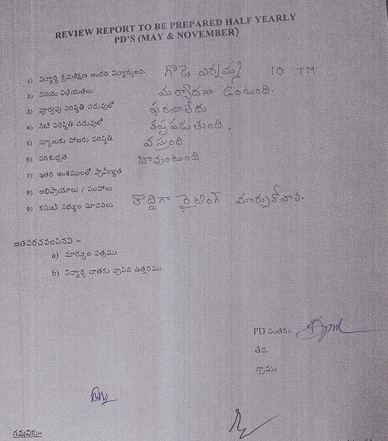 REVIEW REPORT TO BE PREPARED HALF YEARLY
PD'S (MAY & NOVEMBER)
1) విద్యార్థి క్రమశిక్షణ అందరి విద్యార్థులది. గౌడె ఎర్రమ్మ 10 TM
2) వినయ విధేయతలు మర్యాదగా ఉంటుంది.
3) పూర్వపు పరిస్థితి చదువులో పరవాలేదు
4) నేటి పరిస్థితి చదువులో కష్టపడుతుంది.
5) స్కూలుకు హాజరు పరిస్థితి. వస్తుంది
6) పరిశుభ్రత బావుంటుంది
7) ఇతర అంశములలో ప్రావీణ్యత
8) అభిప్రాయాలు / సలహాలు
9) కమిటీ సభ్యుల సూచనలు కొద్దిగా రైటింగ్ మార్చుకోవాలి.
జతపరచవలసినవి :-
a) మార్కుల పత్రము
b) విద్యార్థి దాతకు వ్రాసిన ఉత్తరము
PD సంతకం
తేది.
గ్రామం
గమనిక:-